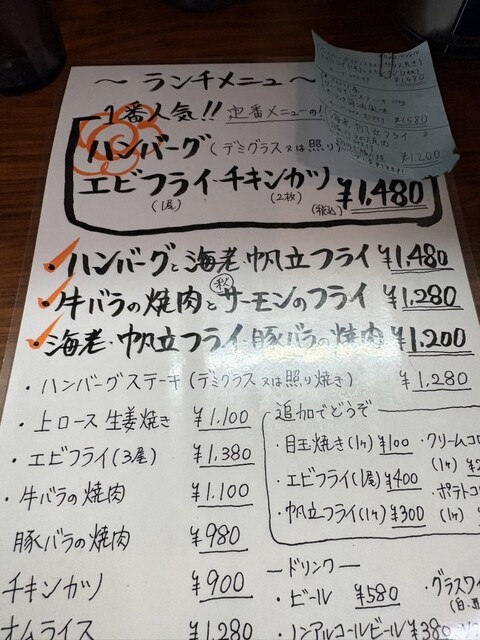 ～ ランチメニュー ～
1番人気!! 定番メニューの!
ハンバーグ(デミグラス又は照り
エビフライ・チキンカツ ¥1,480
(1尾) (2枚) (税込)
¥1,480
¥1,580
海老・帆立フライ
¥1,200
・ハンバーグと海老・帆立フライ ¥1,480
・牛バラの焼肉と(秋)サーモンのフライ ¥1,280
・海老・帆立フライ・豚バラの焼肉 ¥1,200
・ハンバーグステーキ(デミグラス又は照り焼き) ¥1,280
・上ロース生姜焼き ¥1,100
・エビフライ(3尾) ¥1,380
・牛バラの焼肉 ¥1,100
豚バラの焼肉 ¥980
チキンカツ ¥900
オムライス ¥1,280
追加でどうぞ
・目玉焼き(1ヶ) ¥100
・エビフライ(1尾) ¥400
・帆立フライ(1ヶ) ¥300
・クリームコロ
(1ヶ) ¥2
・ポテトコ
(1ヶ) ¥
―ドリンク―
・ビール ¥580
・グラスワイ
(白・
・ノンアルコールビール ¥380